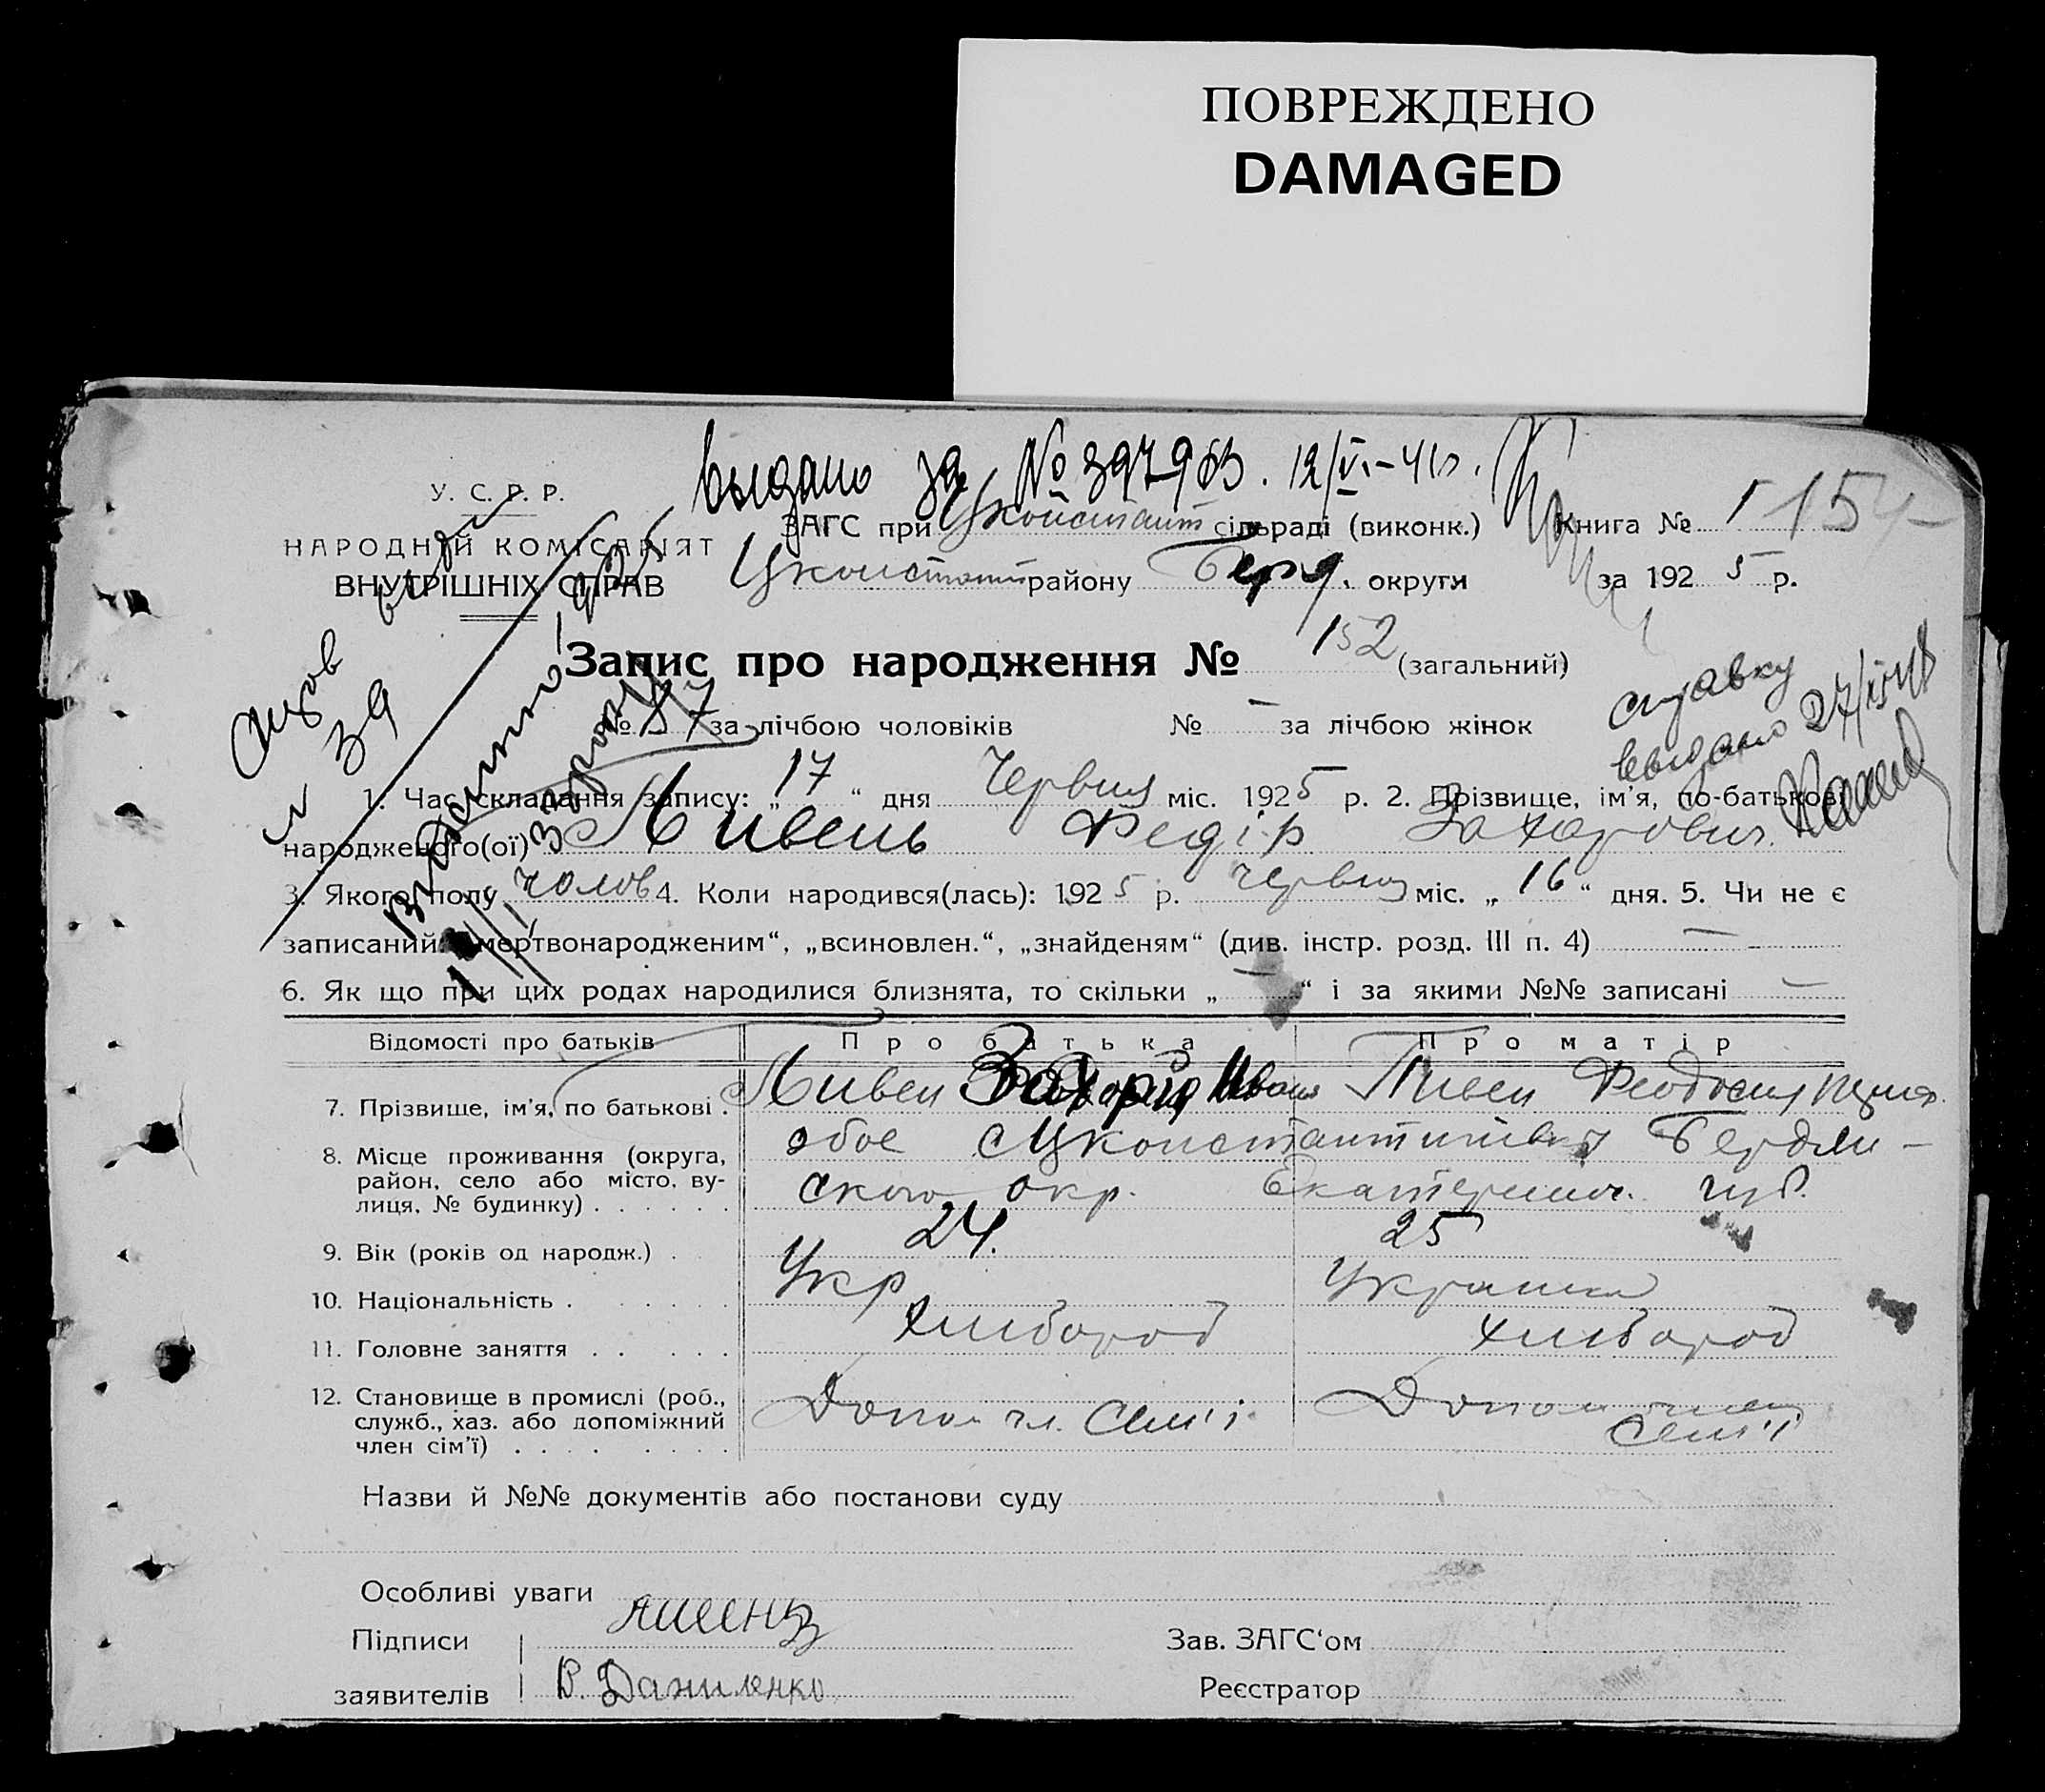 ПОВРЕЖДЕНО
DAMAGED
выдано за № 397903. 12/VI-41г.
У. С. Р. Р.
НАРОДНІЙ КОМІСАРІЯТ
ВНУТРІШНІХ СПРАВ
ЗАГС при Цконстант сільраді (виконк.) Книга № 1 154
Цконстант району Берд. округи за 1925 р.
Запис про народження № 152 (загальний)
№ 87 за лічбою чоловіків № – за лічбою жінок
справку
выдано
39
1. Час складання запису: „17“ дня Червня міс. 1925 р. 2. Прізвище, ім'я, по-батькові
народженого(ої) Пивень Федір Захарович.
3. Якого полу чолов 4. Коли народився(лась): 1925 р. червня міс. „16“ дня. 5. Чи не є
записаний „мертвонародженим“, „всиновлен.“, „знайденям“ (див. інстр. розд. III п. 4) —
6. Як що при цих родах народилися близнята, то скільки „—“ і за якими №№ записані —
Відомості про батьків Про батька Про матір
7. Прізвище, ім'я, по батькові . Пивен Захарій Иван Пивен Феодосия
8. Місце проживання (округа, район, село або місто, вулиця, № будинку) . . . . . .
обое Бердян-
ского окр. Екатеринос. губ.
9. Вік (років од народж.) . 24. 25
10. Національність . Укр Украинка
11. Головне заняття . . хлибороб хлибороб
12. Становище в промислі (роб., служб., хаз. або допоміжний член сім'ї) . . . .
Допом чл. сем'і Допом член
сем'і
Назви й №№ документів або постанови суду
Особливі уваги
Підписи Зав. ЗАГС'ом
заявителів В. Даниленко Реєстратор